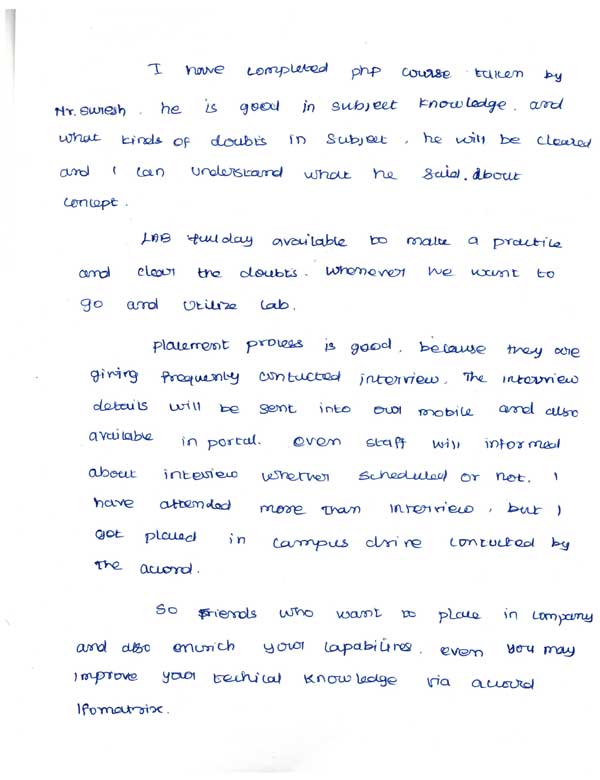 I have completed php course taken by
Mr. Suresh. he is good in subject knowledge. and
what kinds of doubts in subject, he will be cleared
and I can understand what he said. about
concept.
LAB fullday available to make a practice
and clear the doubts. whenever we want to
go and utilize lab.
placement process is good. because they are
giving frequently contucted interview. The interview
details will be sent into our mobile and also
available in portal. even staff will informed
about interview whether scheduled or not. I
have attended more than interview, but I
got placed in campus drive contucted by
the accord.
So friends who want to place in company
and also enurich your capabilires. even you may
improve your techical knowledge via accord